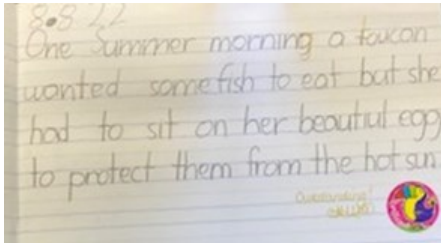 8.8.22
One Summer morning a toucan
wanted some fish to eat but she
had to sit on her beautiul egg
to protect them from the hot sun
Outstanding!